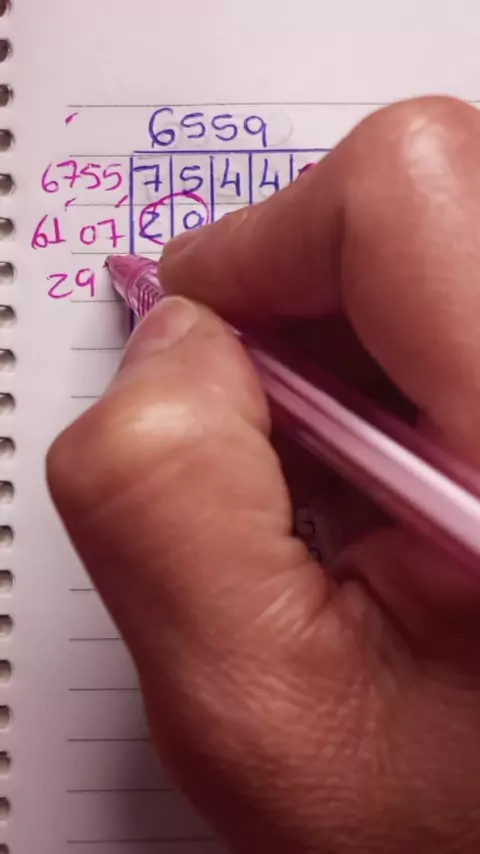 6559
6755 7 5 4 4
6107 2 9
29